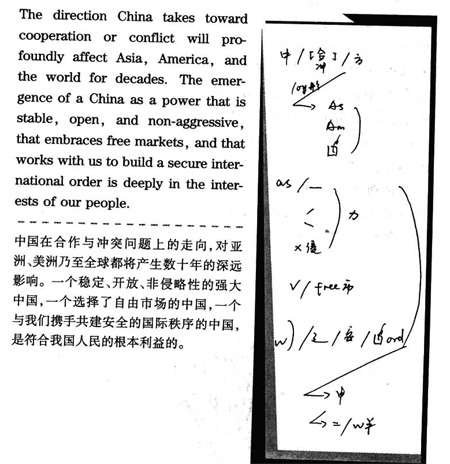 The direction China takes toward
cooperation or conflict will pro-
foundly affect Asia, America, and
the world for decades. The emer-
gence of a China as a power that is
stable, open, and non-aggressive,
that embraces free markets, and that
works with us to build a secure inter-
national order is deeply in the inter-
ests of our people.
中国在合作与冲突问题上的走向,对亚
洲、美洲乃至全球都将产生数十年的深远
影响。一个稳定、开放、非侵略性的强大
中国,一个选择了自由市场的中国,一个
与我们携手共建安全的国际秩序的中国,
是符合我国人民的根本利益的。
中 /
As
Am
as /
力
x 侵
v / free 市
ord
中